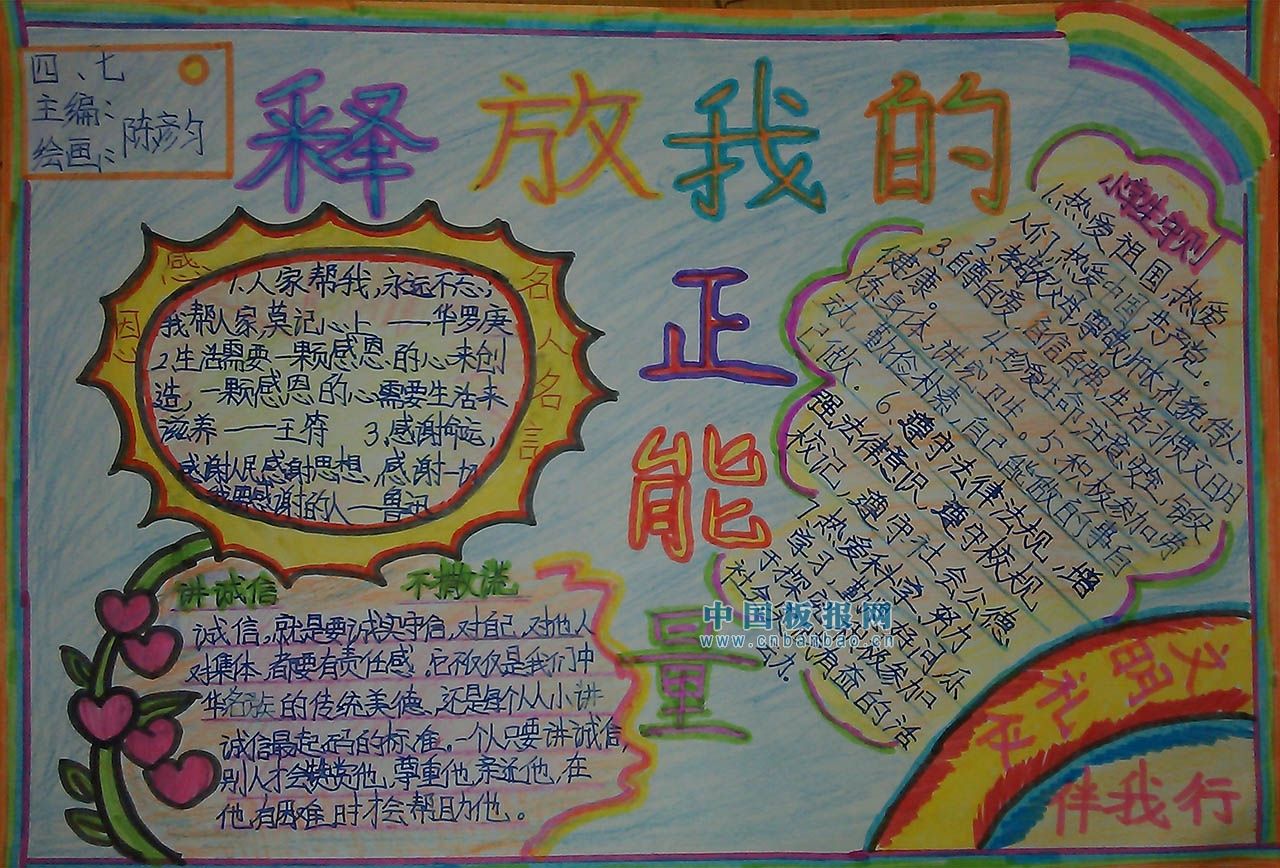 四、七
主编:
绘画:
陈彦匀
释放我的
正
能
量
感恩
名人名言
1.人家帮我,永远不忘;
我帮人家,莫记心上 ——华罗庚
2.生活需要一颗感恩的心来创
造,一颗感恩的心需要生活来
滋养 ——王符 3.感谢命运,
感谢人民,感谢思想,感谢一切
我要感谢的人—鲁迅
讲诚信 不撒谎
诚信,就是要诚实守信,对自己,对他人
对集体,都要有责任感。它不仅仅是我们中
华名族的传统美德,还是每个人人小讲
诚信最起码的标准。一个人只要讲诚信,
别人才会赞赏他,尊重他,亲近他,在
他有困难时才会帮助他。
小学生守则
1.热爱祖国,热爱
人们,热爱中国共产党。
2.孝敬父母,尊敬师长,礼貌待人。
3.自尊自爱,自信自强,生活习惯文明
健康。 4.珍爱生命,注意安全,锻
炼身体,讲究卫生。5.积极参加劳
动,勤俭朴素,自己能做的事自
己做。 6.遵守法律法规,增
强法律意识,遵守校规
校记,遵守社会公德
7.热爱科学,努力
学习,勤思好问,乐
于探究,积极参加
社会
有益的活
动。
中国板报网
www.cnbanbao.cn
文明礼仪
伴我行